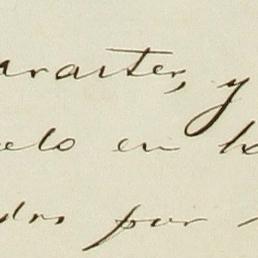 aracter, y
elo en la
dro por